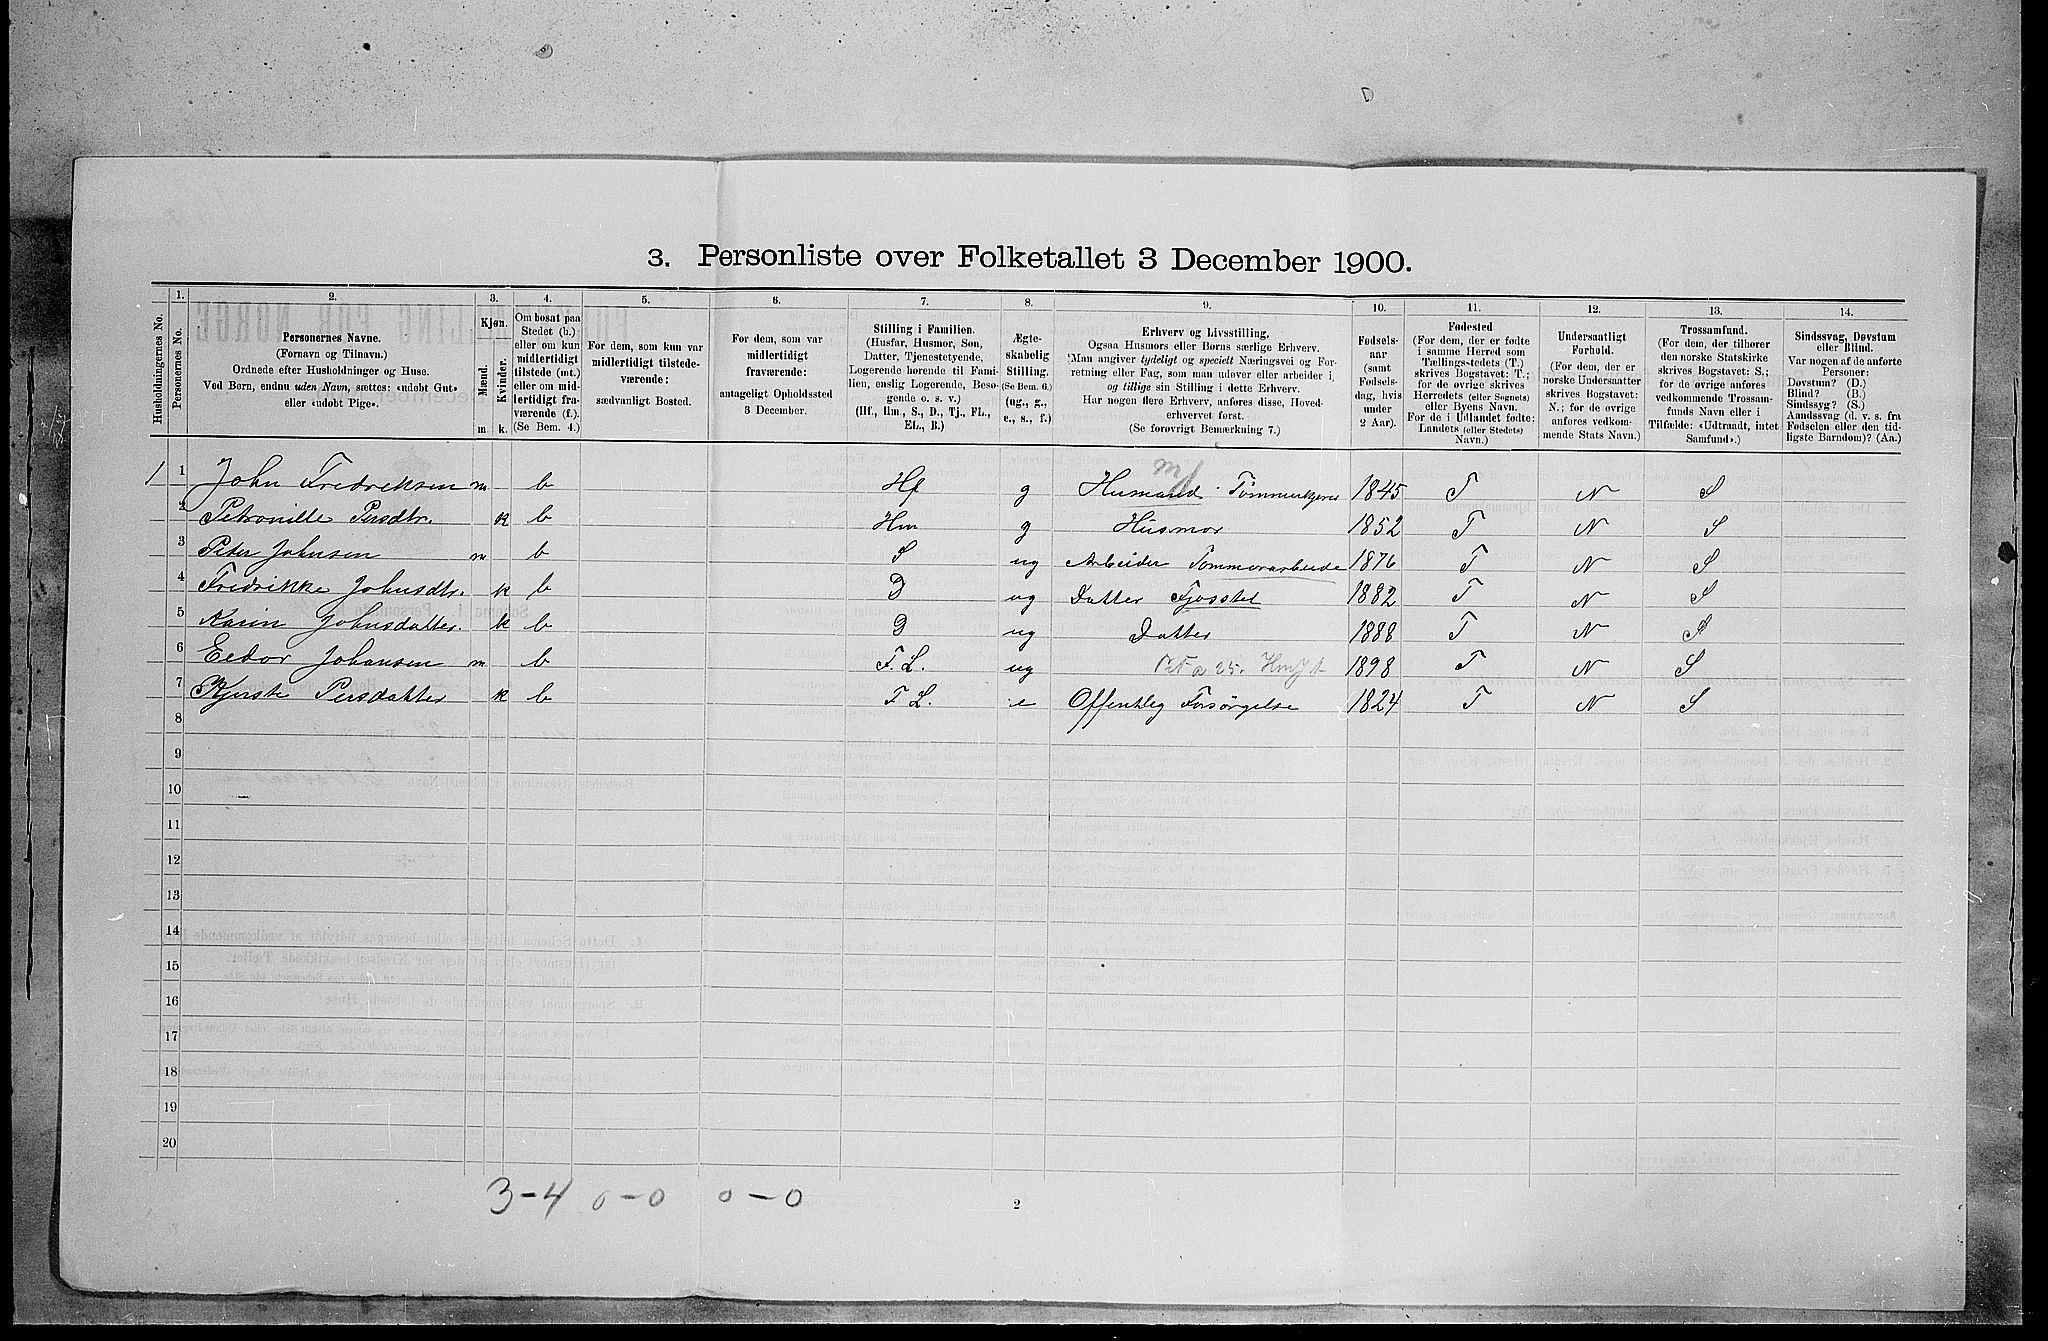 3. Personliste over Folketallet 3 December 1900.
Husholdningernes No.
1.
Personernes No.
2.
Personernes Navne.
(Fornavn og Tilnavn.)
Ordnede efter Husholdninger og Huse.
Ved Børn, endnu uden Navn, sættes: «udøbt Gut»
eller «udøbt Pige».
3.
Kjøn.
Mænd.
Kvinder.
m. k.
4.
Om bosat paa
Stedet (b.)
eller om kun
midlertidigt
tilstede (mt.)
eller om mid-
lertidigt fra-
værende (f.).
(Se Bem. 4.)
5.
For dem, som kun var
midlertidigt tilstede-
værende:
sædvanligt Bosted.
6.
For dem, som var
midlertidigt
fraværende:
antageligt Opholdssted
3 December.
7.
Stilling i Familien.
(Husfar, Husmor, Søn,
Datter, Tjenestetyende,
Logerende hørende til Fami-
lien, enslig Logerende, Besø-
gende o. s. v.)
(Hf., Hm., S., D., Tj., FL.,
EL., B.)
8.
Ægte-
skabelig
Stilling.
(Se Bem. 6.)
(ug., g.,
e., s., f.)
9.
Erhverv og Livsstilling.
Ogsaa Husmors eller Børns særlige Erhverv.
Man angiver tydeligt og specielt Næringsvei og For-
retning eller Fag, som man udøver eller arbeider i,
og tillige sin Stilling i dette Erhverv.
Har nogen flere Erhverv, anføres disse, Hoved-
erhvervet først.
(Se forøvrigt Bemærkning 7.)
10.
Fødsels-
aar
(samt
Fødsels-
dag, hvis
under
2 Aar).
11.
Fødested
(For dem, der er fødte
i samme Herred som
Tællings-stedets (T.)
skrives Bogstavet: T.;
for de øvrige skrives
Herredets (eller Sognets)
eller Byens Navn.
For de i Udlandet fødte:
Landets (eller Stedets)
Navn.)
12.
Undersaatligt
Forhold.
(For dem, der er
norske Undersaatter
skrives Bogstavet:
N.; for de øvrige
anføres vedkom-
mende Stats Navn.)
13.
Trossamfund.
(For dem, der tilhører
den norske Statskirke
skrives Bogstavet: S.;
for de øvrige anføres
vedkommende Trossam-
funds Navn eller i
Tilfælde: «Udtraadt, intet
Samfund».)
14.
Sindssvag, Døvstum
eller Blind.
Var nogen af de anførte
Personer:
Døvstum? (D.)
Blind? (B.)
Sindssyg? (S.)
Aandssvag (d. v. s. fra
Fødselen eller den tid-
ligste Barndom)? (Aa.)
1 1 John Fredriksen m b Hf g Husmand Tømmerkjører 1845 T N S
2 Petronille Persdtr. k b Hm g Husmor 1852 T N S
3 Peter Johnsen m b S ug Arbeider Tømmerarbeide 1876 T N S
4 Fredrikke Johnsdtr. k b D ug Datter Fjosstel 1882 T N S
5 Karin Johnsdatter. k b D ug Datter 1888 T N S
6 Eedor Johansen m b F.L. ug 1898 T N S
7 Kjerste Persdatter k b F L. e Offentlig Forsørgelse 1824 T N S
8
9
10
11
12
13
14
15
16
17
18
19
20
3-4 0-0 0-0
2